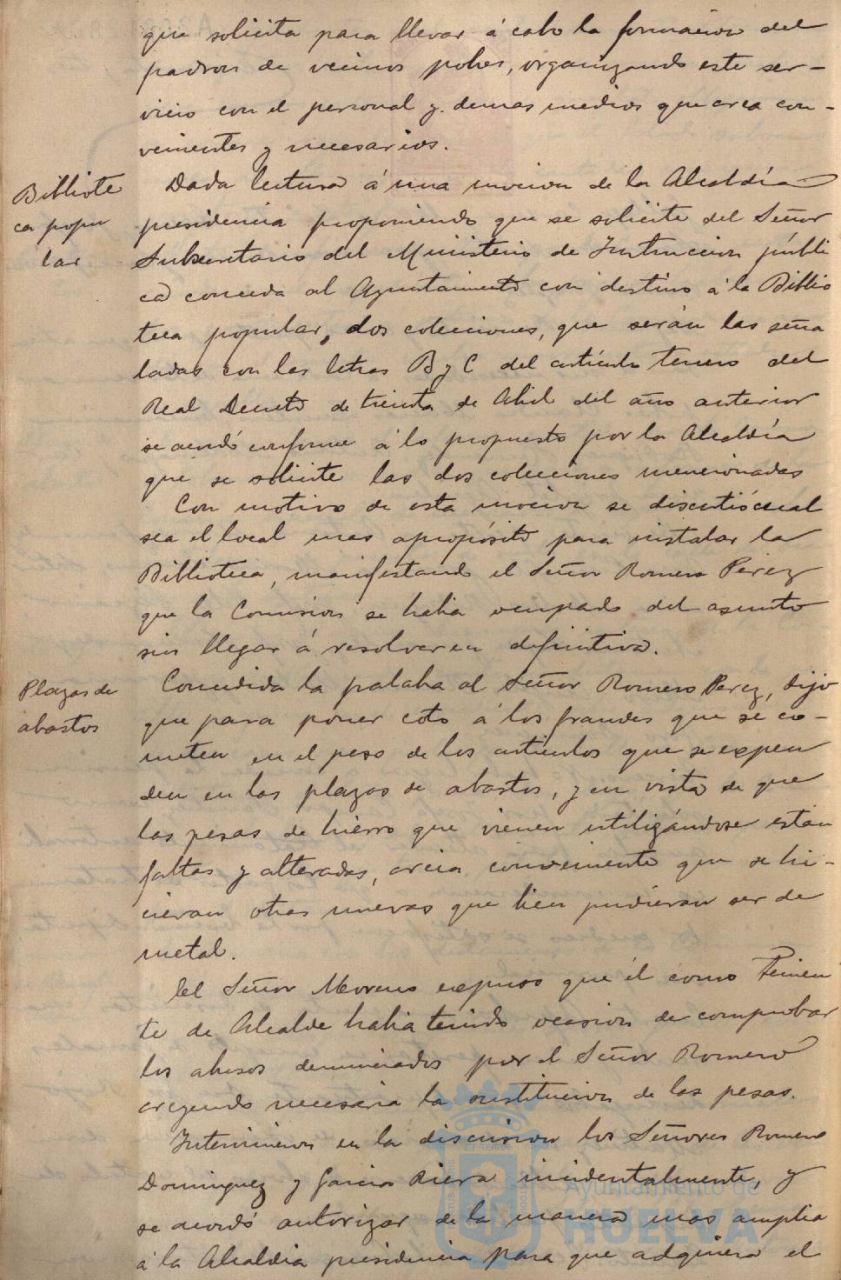 que solicita para llevar á cabo la formacion del
padron de vecinos pobres, organizando este ser-
vicio con el personal y demas medios que crea con-
venientes y necesarios.
Bibliote
ca popu
lar
Dada lectura á una mocion de la Alcaldía
presidencia proponiendo que se solicite del Señor
Subsecretario del Ministerio de Instruccion públi
ca conceda al Ayuntamiento con destino á la Biblio
teca popular, dos colecciones, que serán las seña
ladas con las letras B y C del artículo tercero del
Real Decreto de treinta de Abril del año anterior
se acordó conforme á lo propuesto por la Alcaldía
que se solicite las dos colecciones mencionadas
Con motivo de esta mocion se discutió cual
sea el local mas apropósito para instalar la
Biblioteca, manifestando el Señor Romero Perez
que la Comision se habia ocupado del asunto
sin llegar á resolver en definitiva.
Plazas de
abastos
Concedida la palabra al Señor Romero Perez, dijo
que para poner coto á los fraudes que se co-
meten en el peso de los artículos que se expen
den en las plazas de abastos, y en vista de que
las pesas de hierro que vienen utilizándose estan
faltas y alteradas, creia conveniente que se hi-
cieran otras nuevas que bien pudieran ser de
metal.
El Señor Moreno expuso que él como Tenien
te de Alcalde habia tenido ocasion de comprobar
los abusos denunciados por el Señor Romero
creyendo necesaria la sustitucion de las pesas.
Intervinieron en la discusion los Señores Romero
Dominguez y Garcia Riera incidentalmente, y
se acordó autorizar de la manera mas amplia
á la Alcaldia presidencia para que adquiera el
Ayuntamiento de
HUELVA